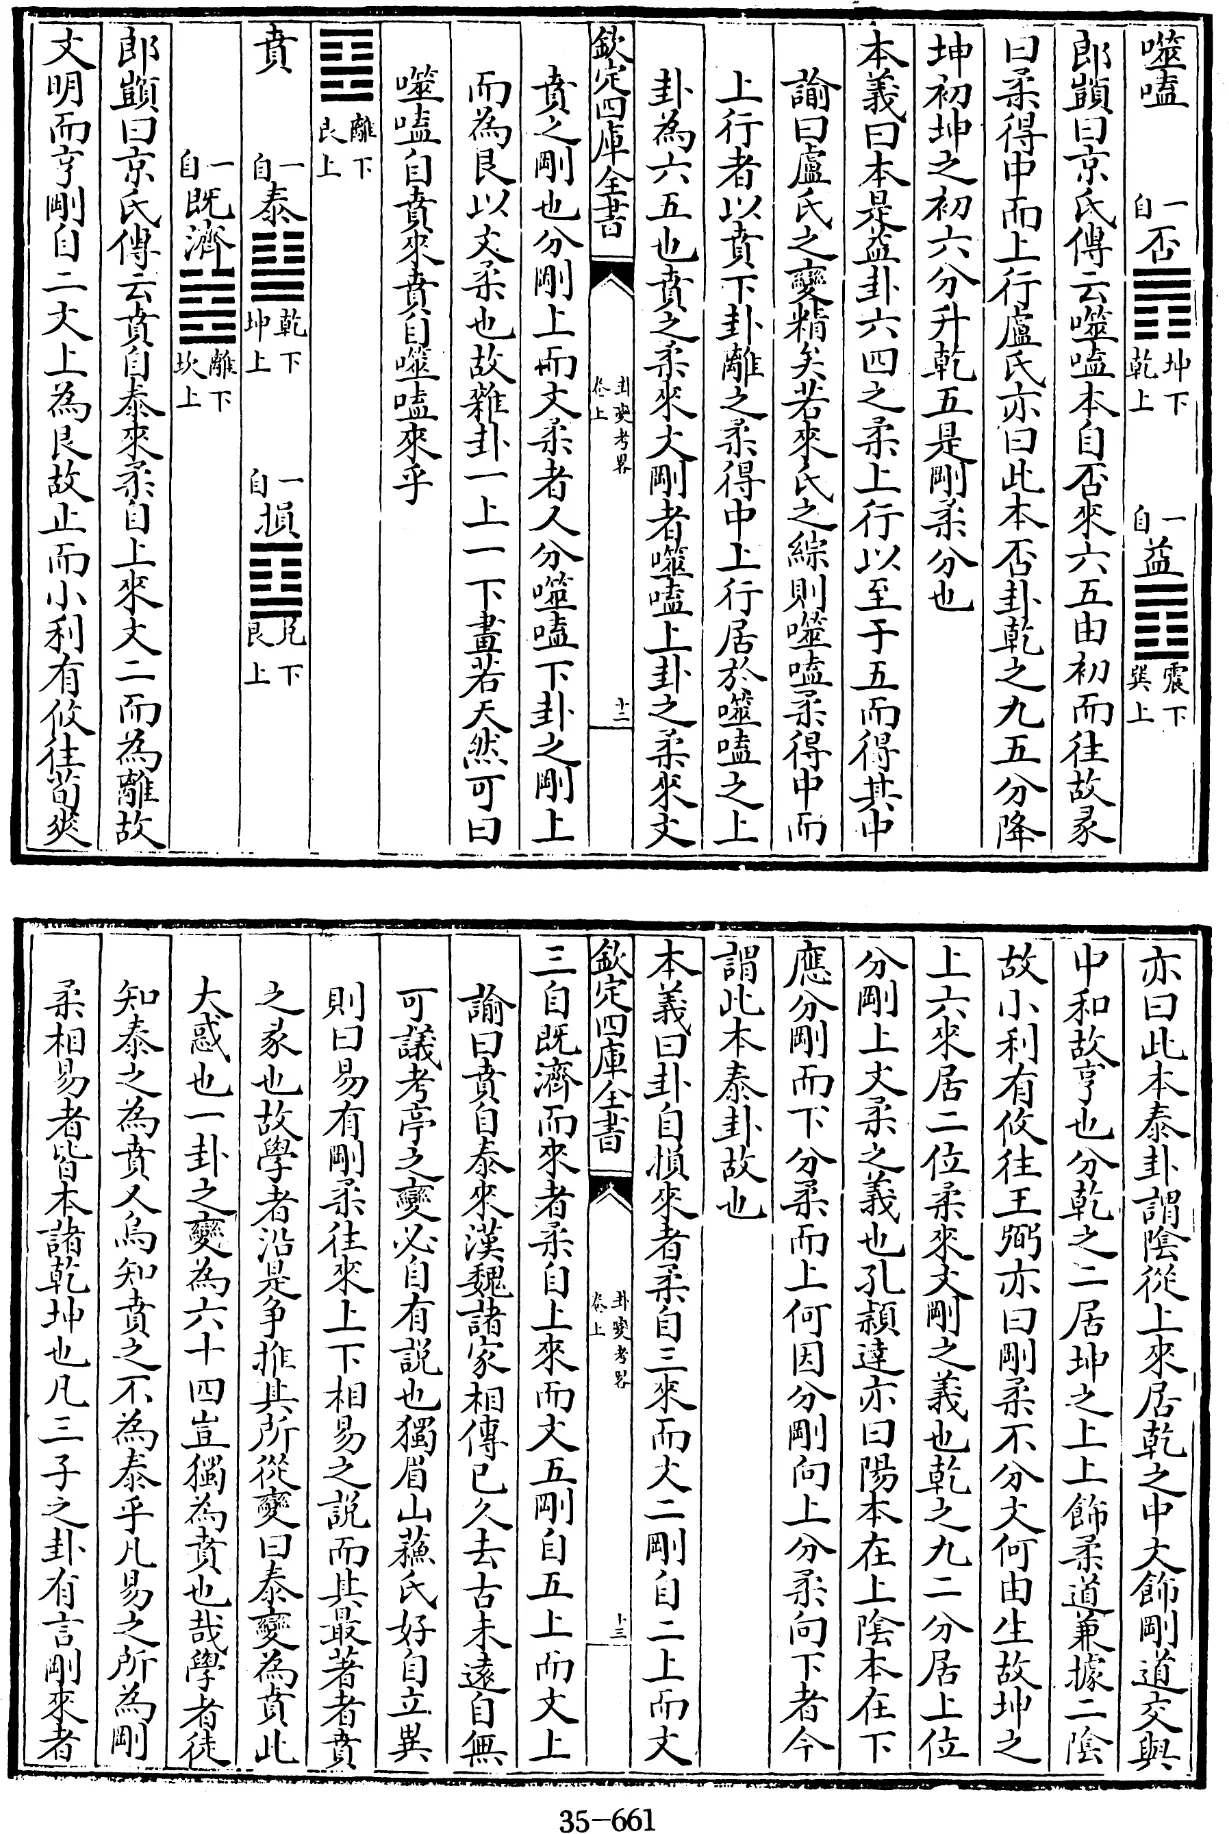 噬嗑　一自否䷋坤下乾上　一自益䷩震下巽上
郎顗曰京氏傳云噬嗑本自否來六五由初而往故彖
曰柔得中而上行盧氏亦曰此本否卦乾之九五分降
坤初坤之初六分升乾五是剛柔分也
本義曰本是益卦六四之柔上行以至于五而得其中
諭曰盧氏之變精矣若來氏之綜則噬嗑柔得中而
上行者以賁下卦離之柔得中上行居於噬嗑之上
卦為六五也賁之柔來文剛者噬嗑上卦之柔來文
欽定四庫全書　卦變考畧卷上　十二
賁之剛也分剛上而文柔者又分噬嗑下卦之剛上
而為艮以文柔也故雜卦一上一下畫若天然可曰
噬嗑自賁來賁自噬嗑來乎
䷕離下艮上
賁　一自泰䷊乾下坤上　一自損䷨兑下艮上
一自既濟䷾離下坎上
郎顗曰京氏傳云賁自泰來柔自上來文二而為離故
文明而亨剛自二文上為艮故止而小利有攸往荀爽
亦曰此本泰卦謂陰從上來居乾之中文飾剛道交與
中和故亨也分乾之二居坤之上上飾柔道兼據二陰
故小利有攸往王弼亦曰剛柔不分文何由生故坤之
上六來居二位柔來文剛之義也乾之九二分居上位
分剛上文柔之義也孔頴達亦曰陽本在上陰本在下
應分剛而下分柔而上何因分剛向上分柔向下者今
謂此本泰卦故也
本義曰卦自損來者柔自三來而文二剛自二上而文
欽定四庫全書　卦變考畧卷上　十三
三自既濟而來者柔自上來而文五剛自五上而文上
諭曰賁自泰來漢魏諸家相傳已久去古未遠自無
可議考亭之變必自有説也獨眉山蘓氏好自立異
則曰易有剛柔往來上下相易之説而其最著者賁
之彖也故學者沿是争推其所從變曰泰變為賁此
大惑也一卦之變為六十四豈獨為賁也哉學者徒
知泰之為賁又烏知賁之不為泰乎凡易之所為剛
柔相易者皆本諸乾坤也凡三子之卦有言剛來者
35-661